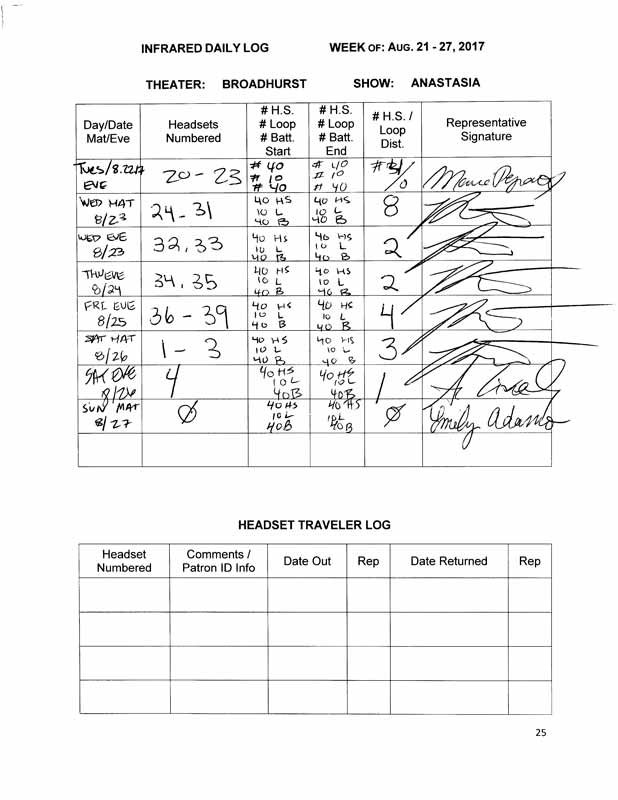 INFRARED DAILY LOG WEEK OF: AUG. 21 - 27, 2017
THEATER: BROADHURST SHOW: ANASTASIA
Day/Date
Mat/Eve
Headsets
Numbered
# H.S.
# Loop
# Batt.
Start
# H.S.
# Loop
# Batt.
End
# H.S. /
Loop
Dist.
Representative
Signature
EVE
20 - 23
# 40
# 10
# 40
# 40
# 10
# 40
WED MAT
8/23
24 - 31
40 HS
10 L
40 B
40 HS
10 L
40 B
8
WED EVE
8/23
32, 33
40 HS
10 L
40 B
40 HS
10 L
40 B
2
THU EVE
8/24
34, 35
40 HS
10 L
40 B
40 HS
10 L
40 B
2
FRI EVE
8/25
36 - 39
40 HS
10 L
40 B
40 HS
10 L
40 B
4
SAT MAT
8/26
1 - 3
40 HS
10 L
40 B
40 HS
10 L
40 B
3
SAT EVE
8/26
4
40 HS
10 L
40B
40 HS
10L
40B
1
SUN MAT
8/27
Ø
40 HS
10 L
40B
40 HS
10L
40B
Ø
Emily Adamo
HEADSET TRAVELER LOG
Headset
Numbered
Comments /
Patron ID Info
Date Out
Rep
Date Returned
Rep
25